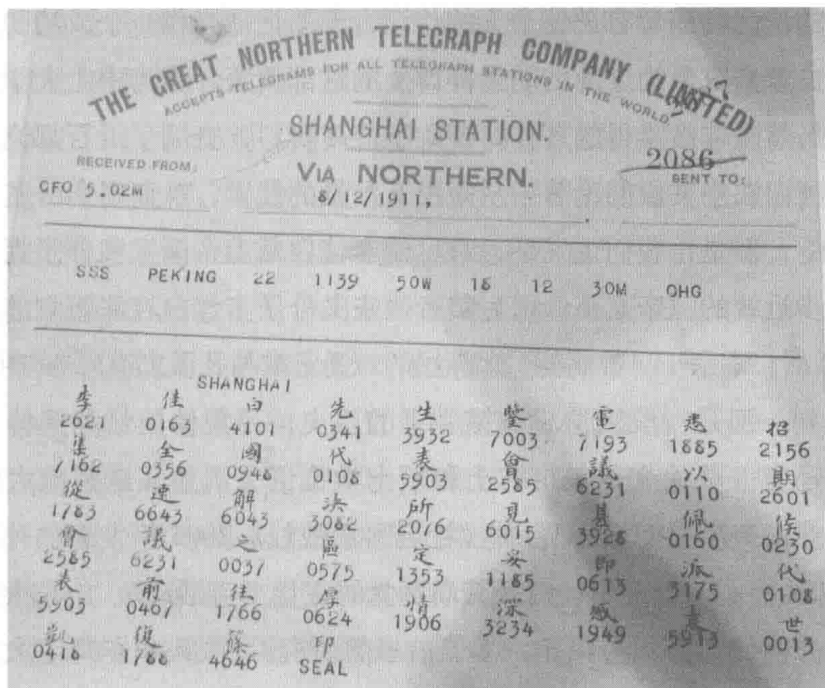 THE GREAT NORTHERN TELEGRAPH COMPANY (LIMITED)
ACCEPTS TELEGRAMS FOR ALL TELEGRAPH STATIONS IN THE WORLD
SHANGHAI STATION.
RECEIVED FROM: VIA NORTHERN. 2086 SENT TO:
CFO 5.02M 8/12/1911,
SSS PEKING 22 1139 50W 18 12 30M OHG
SHANGHAI
李 佳 白 先 生 鑒 電 悉 招
2621 0163 4101 0341 3932 7003 7193 1885 2156
集 全 國 代 表 會 議 以 期
7162 0356 0948 0108 5903 2585 6231 0110 2601
從 速 解 決 所 見 甚 佩 候
1783 6643 6043 3082 2076 6015 3928 0160 0230
會 議 之 區 定 妥 即 派 代
2585 6231 0037 0575 1353 1185 0613 3175 0108
表 前 往 厚 情 深 感 袁 世
5903 0467 1766 0624 1906 3234 1949 5913 0013
凱 復 蒸 印
0418 1788 4646 SEAL